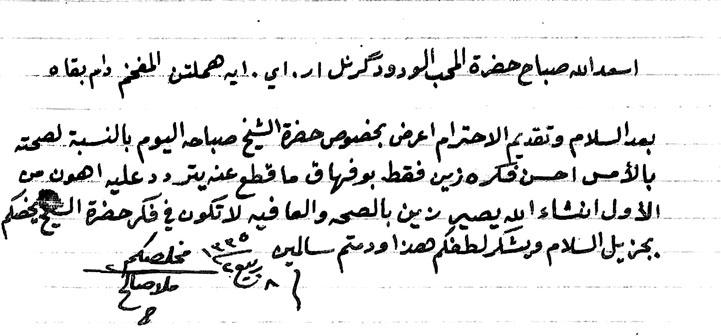 اسعد الله صباح حضرة المحب الودود كرنل ار. اي. ايه هملتن المفخم دام بقاه
بعد السلام وتقديم الاحترام اعرض بخصوص حضرة الشيخ صباحه اليوم بالنسبة لصحته
بالأمس احسن فكره زين فقط بوفهاق ما قطع عنه يتردد عليه اهون من
الأول انشاء الله يصير زين بالصحه والعافيه لا تكون في فكر حضرة الشيخ يخصكم
بجزيل السلام ويشكر لطفكم هذا ودمتم سالمين
٨ ربيع ٢ ١٣٣٥
مخلصكم
ملا صالح